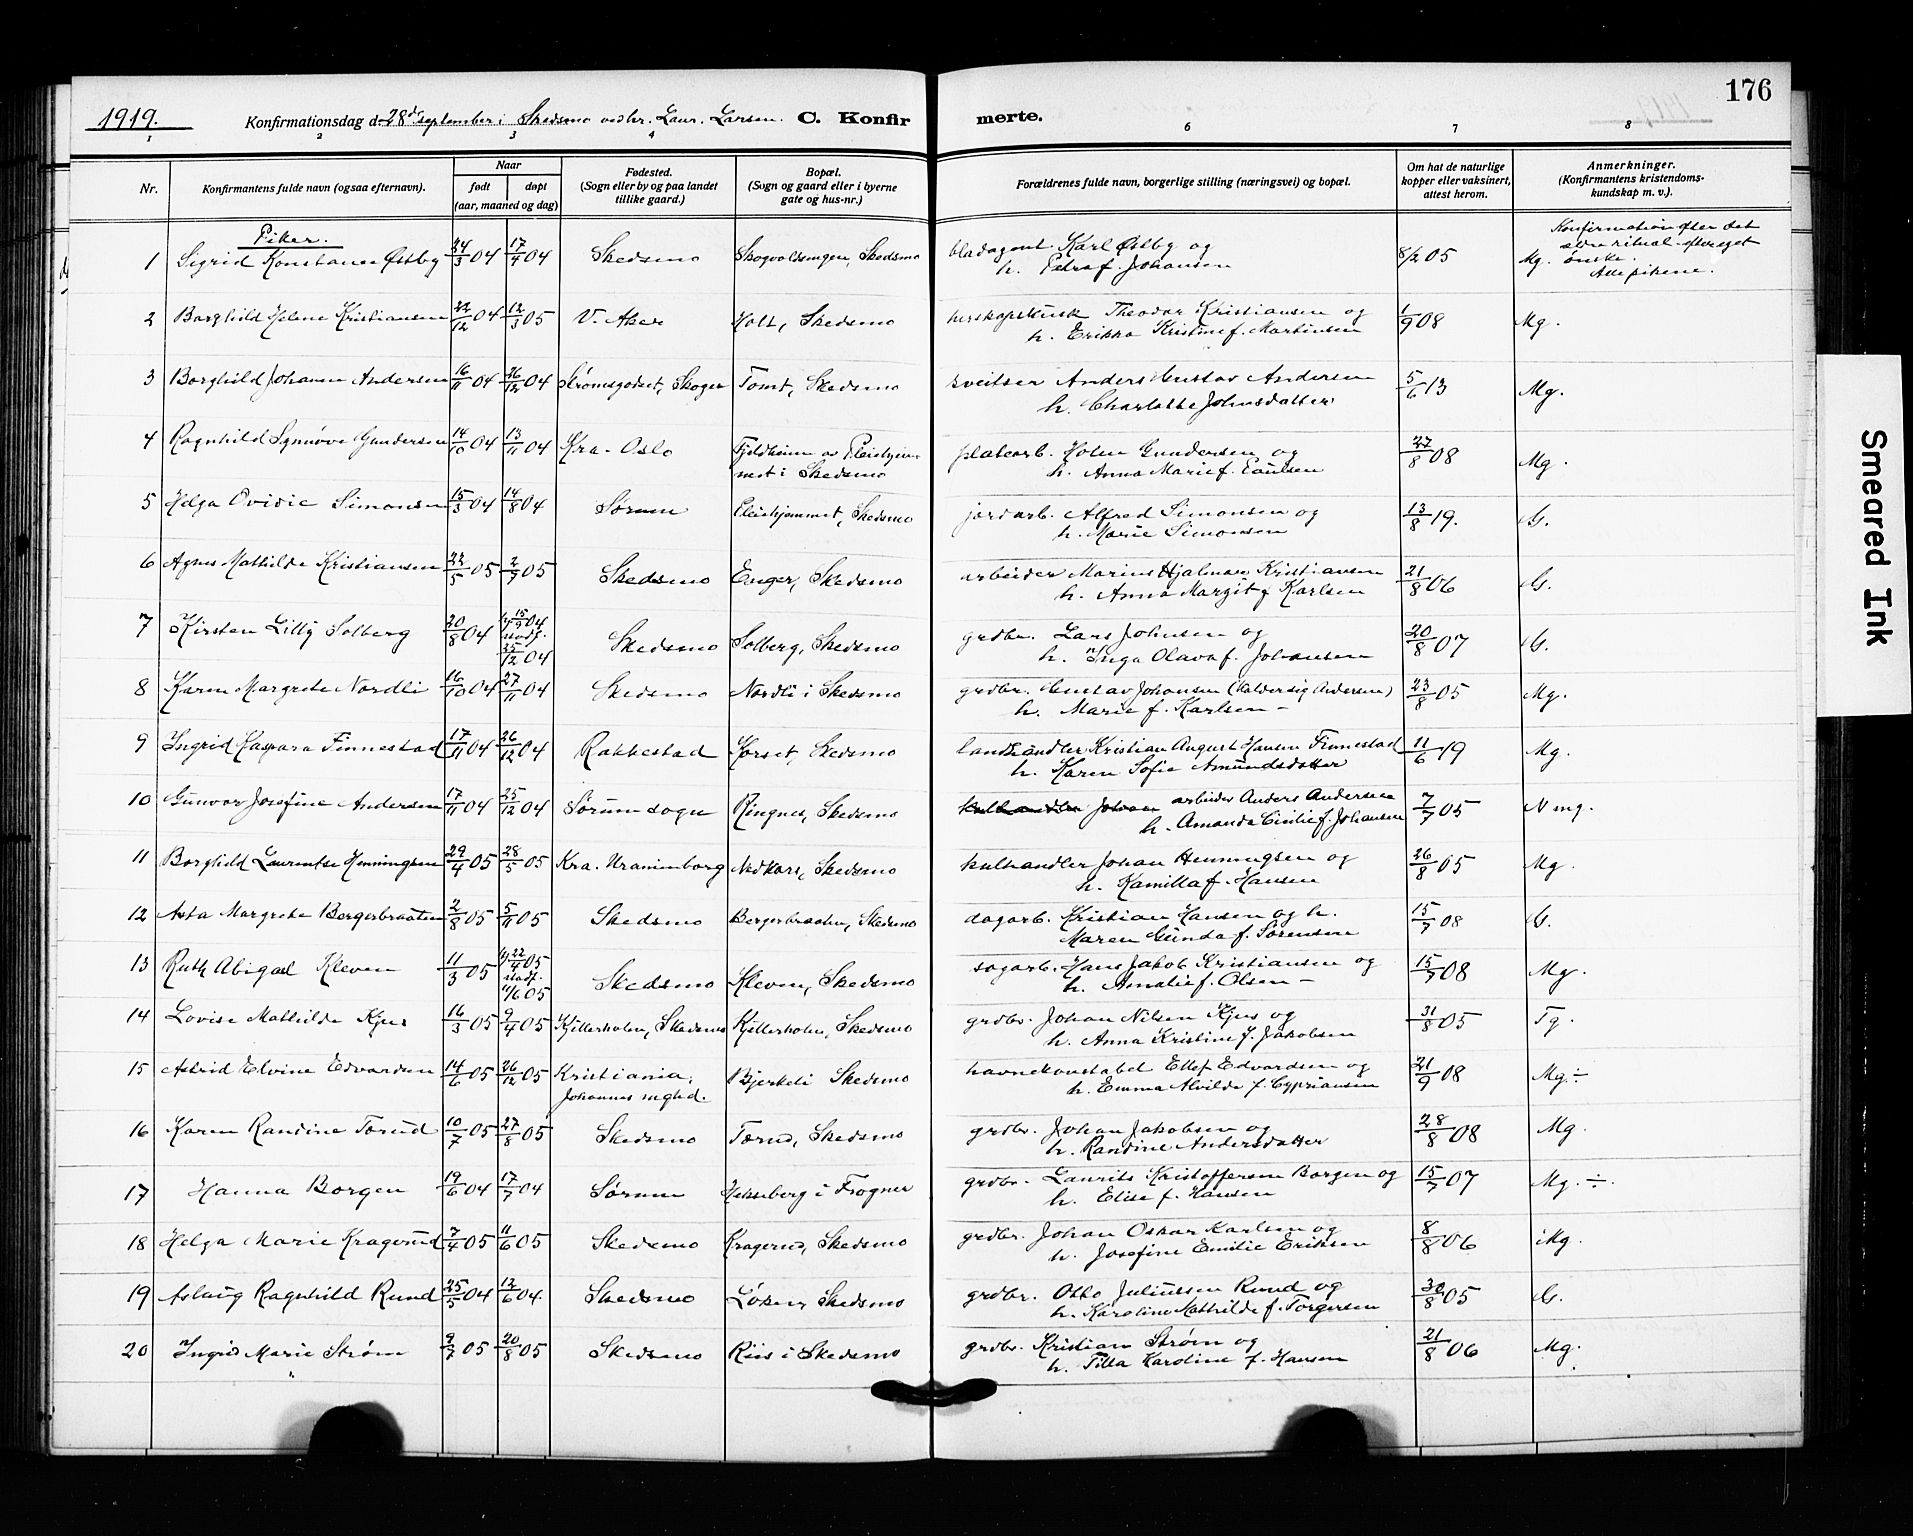 176
1919.
Konfirmationsdag d. 28de september i Skedsmo ved hr. Laur. Larsen. C. Konfir merte.
1 2 3 4 6 7 8
Nr.
Konfirmantens fulde navn (ogsaa efternavn).
Naar
født døpt
(aar, maaned og dag)
Fødested.
(Sogn eller by og paa landet
tillike gaard.)
Bopæl.
(Sogn og gaard eller i byerne
gate og hus-nr.)
Forældrenes fulde navn, borgerlige stilling (næringsvei) og bopæl.
Om hat de naturlige
kopper eller vaksinert,
attest herom.
Anmerkninger.
(Konfirmantens kristendoms-
kundskap m. v.).
Piker.
1 Sigrid Konstance Østby 24/3 04 17/4 04 Skedsmo Skogvoldsengen, Skedsmo bladagent Karl Østby og
h. Petra f. Johansen 8/2 05 Mg. Konfirmation efter det
ritual efter eget
ønske.
Alle pikene.
2 Borghild Helene Kristiansen 22/12 04 12/3 05 V. Aker Holt, Skedsmo herskapskusk Theodor Kristiansen og
h. Erikka Kristine f. Martinsen 1/9 08 Mg.
3 Borghild Johanne Andersen 16/11 04 26/12 04 Strømsgodset, Skoger Tomt, Skedsmo sveitser Anders Gustav Andersen
h. Charlotte Johnsdatter 5/6 13 Mg.
4 Ragnhild Synnøve Gundersen 14/10 04 13/11 04 Kra. Oslo Fjeldheim av Pleiehjem-
met i Skedsmo platearb. Holm Gundersen og
h. Anna Marie f. Paulsen 27/8 08 Mg.
5 Helga Ovidie Simonsen 15/3 04 14/8 04 Sørum Pleiehjemmet, Skedsmo jordarb. Alfred Simonsen og
h. Marie Simonsen 13/8 19. G.
6 Agnes Mathilde Kristiansen 22/5 05 2/7 05 Skedsmo Enger, Skedsmo arbeider Marius Hjalmar Kristiansen
h. Anna Margit f. Karlsen 21/8 06 G.
7 Kirsten Lilly Solberg 20/8 04 hj. 15/9 04
stadf.
25/12 04 Skedsmo Solberg, Skedsmo grdbr. Lars Johnsen og
h. Inga Olava f. Johansen 20/8 07 G.
8 Karen Margrete Nordli 16/10 04 27/11 04 Skedsmo Nordli i Skedsmo grdbr. Gustav Johansen (Haldersig Andersen)
h. Marie f. Karlsen - 23/8 05 Mg.
9 Ingrid Kaspara Finnestad 17/11 04 26/12 04 Rakkestad Horset, Skedsmo landhandler Kristian August Hansen Finnestad
h. Karen Sofie Amundsdatter 11/6 19 Mg.
10 Gunvor Josefine Andersen 17/11 04 25/12 04 Sørum sogn Ringnes, Skedsmo kulhandler Johan arbeider Anders Andersen
h. Amanda Cicilie f. Johansen 7/7 05 N mg.
11 Borghild Laurentse Henningsen 29/4 05 28/5 05 Kra. Uranienborg Nedkors, Skedsmo kulhandler Johan Henningsen og
h. Kamilla f. Hansen 26/8 05 Mg.
12 Asta Margrete Bergerbraaten 2/8 05 5/11 05 Skedsmo Bergerbraaten, Skedsmo dagarb. Kristian Hansen og h.
Maren Gunda f. Sørensen 15/7 08 G.
13 Ruth Abigael Kleven 11/3 05 hj. 22/4 05
stadf.
11/6 05 Skedsmo Kleven, Skedsmo sagarb. Hans Jakob Kristiansen og
h. Amalie f. Olsen - 15/7 08 Mg.
14 Lovise Mathilde Kjus 16/3 05 9/4 05 Kjitterholen, Skedsmo Kjitterholen, Skedsmo grdbr. Johan Nilsen Kjus og
h. Anna Kristine f. Jakobsen 31/8 05 Tg.
15 Astrid Elvine Edvardsen 14/6 05 26/12 05 Kristiania,
Johannes mghd. Bjerkeli Skedsmo havnekonstabel Ellef Edvardsen og
h. Emma Alvilde f. Cypriansen 21/9 08 Mg÷
16 Karen Randine Tørud 10/7 05 27/8 05 Skedsmo Tørud, Skedsmo grdbr. Johan Jakobsen og
h. Randine Andersdatter 28/8 08 Mg.
17 Hanna Borgen 19/6 04 17/7 04 Sørum Hekseberg i Frogner grdbr. Laurits Kristoffersen Borgen og
h. Elise f. Hansen 15/7 07 Mg. ÷.
18 Helga Marie Kragerud 7/4 05 11/6 05 Skedsmo Kragerud, Skedsmo grdbr. Johan Oskar Karlsen og
h. Josefine Emilie Eriksen 8/8 06 Mg.
19 Aslaug Ragnhild Rund 25/5 04 12/6 04. Skedsmo Løken, Skedsmo grdbr. Otto Juliussen Rund og
h. Karoline Mathilde f. Torgersen 30/8 05 G.
20 Ingrid Marie Strøm 9/7 05 20/8 05 Skedsmo Riis i Skedsmo grdbr. Kristian Strøm og
h. Tilla Karoline f. Hansen 21/8 06 Mg.
Smeared Ink